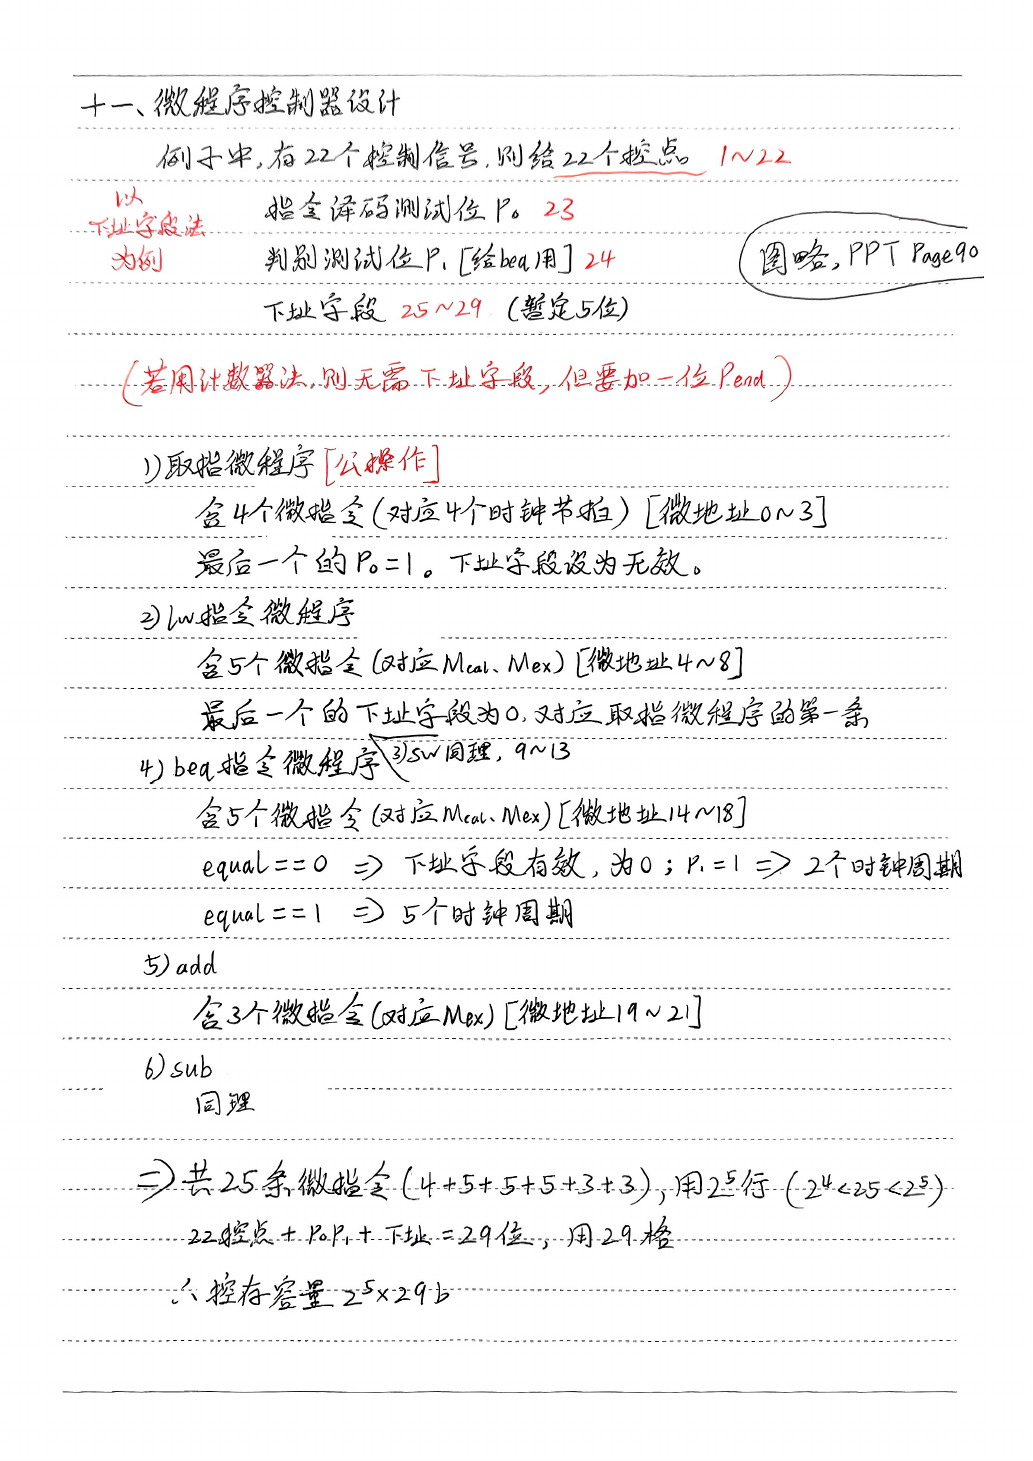 十一、微程序控制器设计
例子中,有22个控制信号,则给22个控点。 1~22
以
下址字段法
为例
指令译码测试位P₀ 23
判别测试位P₁ [给beq用] 24
图略,PPT Page90
下址字段 25~29 (暂定5位)
(若用计数器法,则无需下址字段,但要加一位Pend)
1)取指微程序[公操作]
含4个微指令(对应4个时钟节拍) [微地址0~3]
最后一个的P₀=1。下址字段设为无效。
2)lw指令微程序
含5个微指令(对应Mcal、Mex) [微地址4~8]
最后一个的下址字段为0,对应取指微程序的第一条
3)sw同理, 9~13
4) beq指令微程序
含5个微指令(对应Mcal、Mex) [微地址14~18]
equal==0 => 下址字段有效,为0; P₁=1 => 2个时钟周期
equal==1 => 5个时钟周期
5) add
含3个微指令(对应Mex) [微地址19~21]
6) sub
同理
=> 共25条微指令(4+5+5+5+3+3),用2⁵行 (2⁴<25<2⁵)
22控点+P₀P₁+下址=29位,用29格
∴控存容量 2⁵×29b